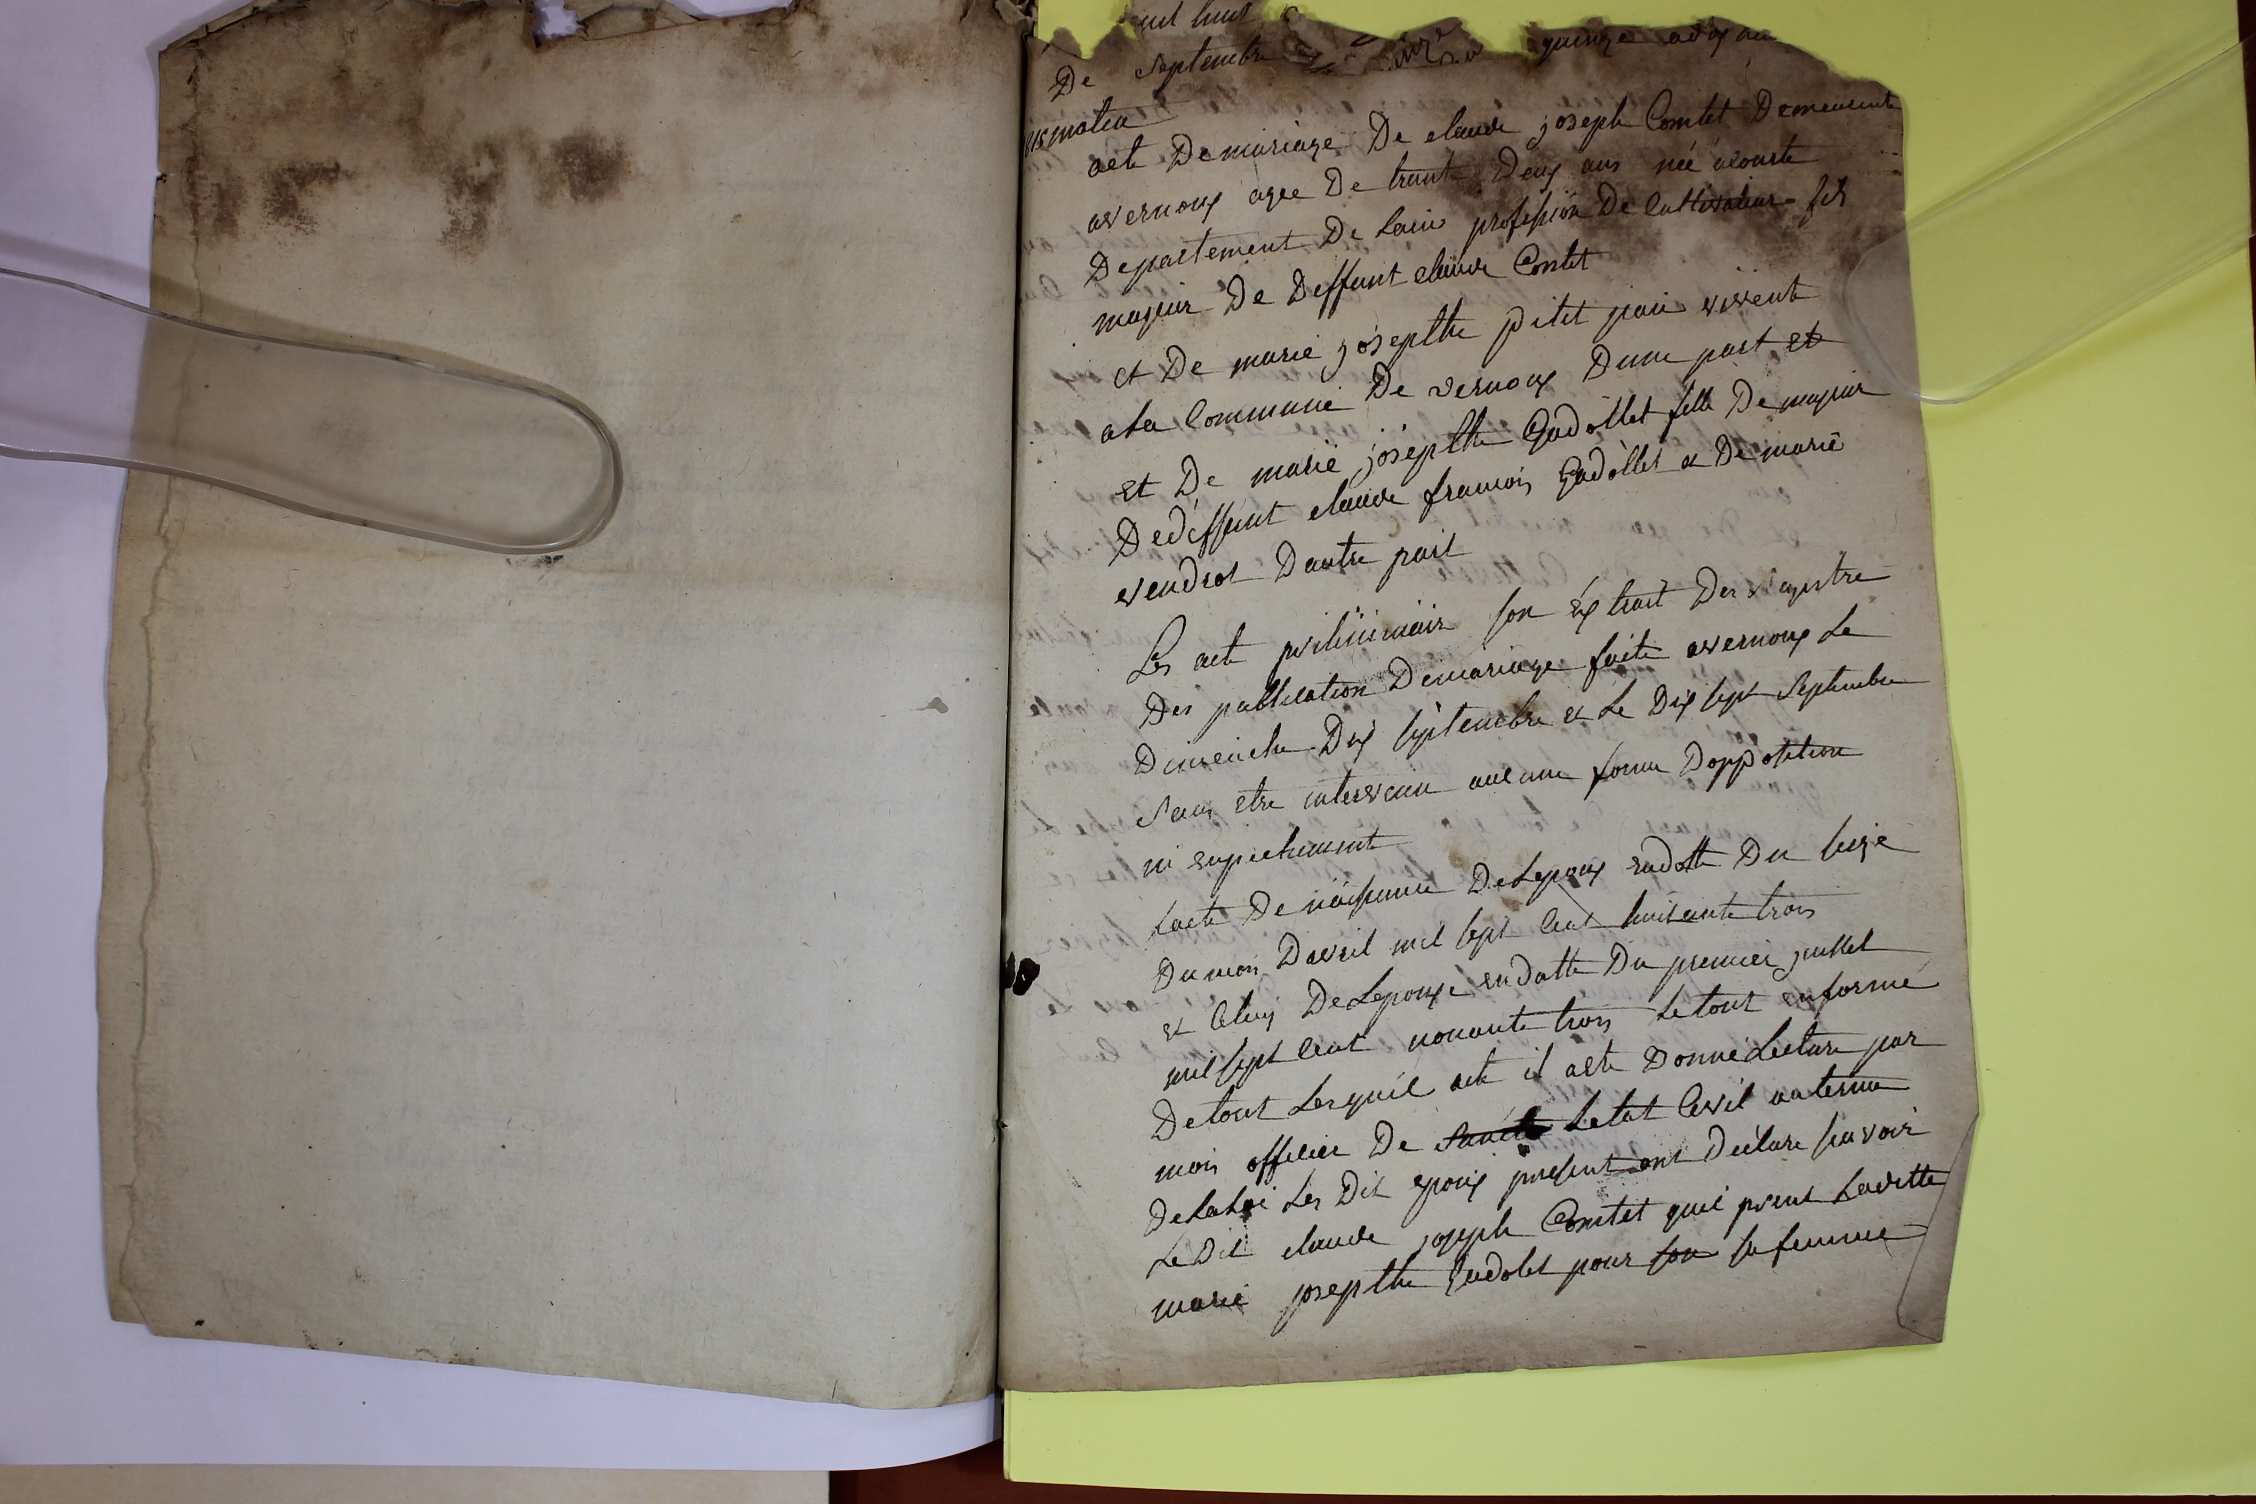 De septembre quinze
du matin
acte De mariage De claude joseph Comtet Demeurant
avernoux agee De trante Deux ans née acourte
Departement De Lain profession De Cultivateur fils
majeur De Deffunt claude Comtet
et De marie josepthe petit jean vivent
ala Commune De vernoux Dune part et
et De marie josepthe Gadollet fille De majeur
Dedeffunt claude francois Gadollet et De marie
vendrot Dautre part
Les acte preliminair son Extrait Des registre
Des publication Demariage faite avernoux Le
Dimenche Dix septembre et Le Dix sept Septembre
sans etre intervenu aucune forme Dopposition
ni enpechement
Lacte De naissance DeLepoux endatte Du seize
Du mois Davril mil sept Cent huitante trois
et Celuy DeLepouse endatte Du premier juillet
mil sept Cent nonante trois Letout enforme
De tout Lesquel acte il aete Donné Lecture par
mois officier De Letat Civil auterme
DelaLoi Les Dit epoux present ont Déclare savoir
LeDit claude joseph Comtet quil prent Laditte
marie josepthe Gadolet pour son sa femme